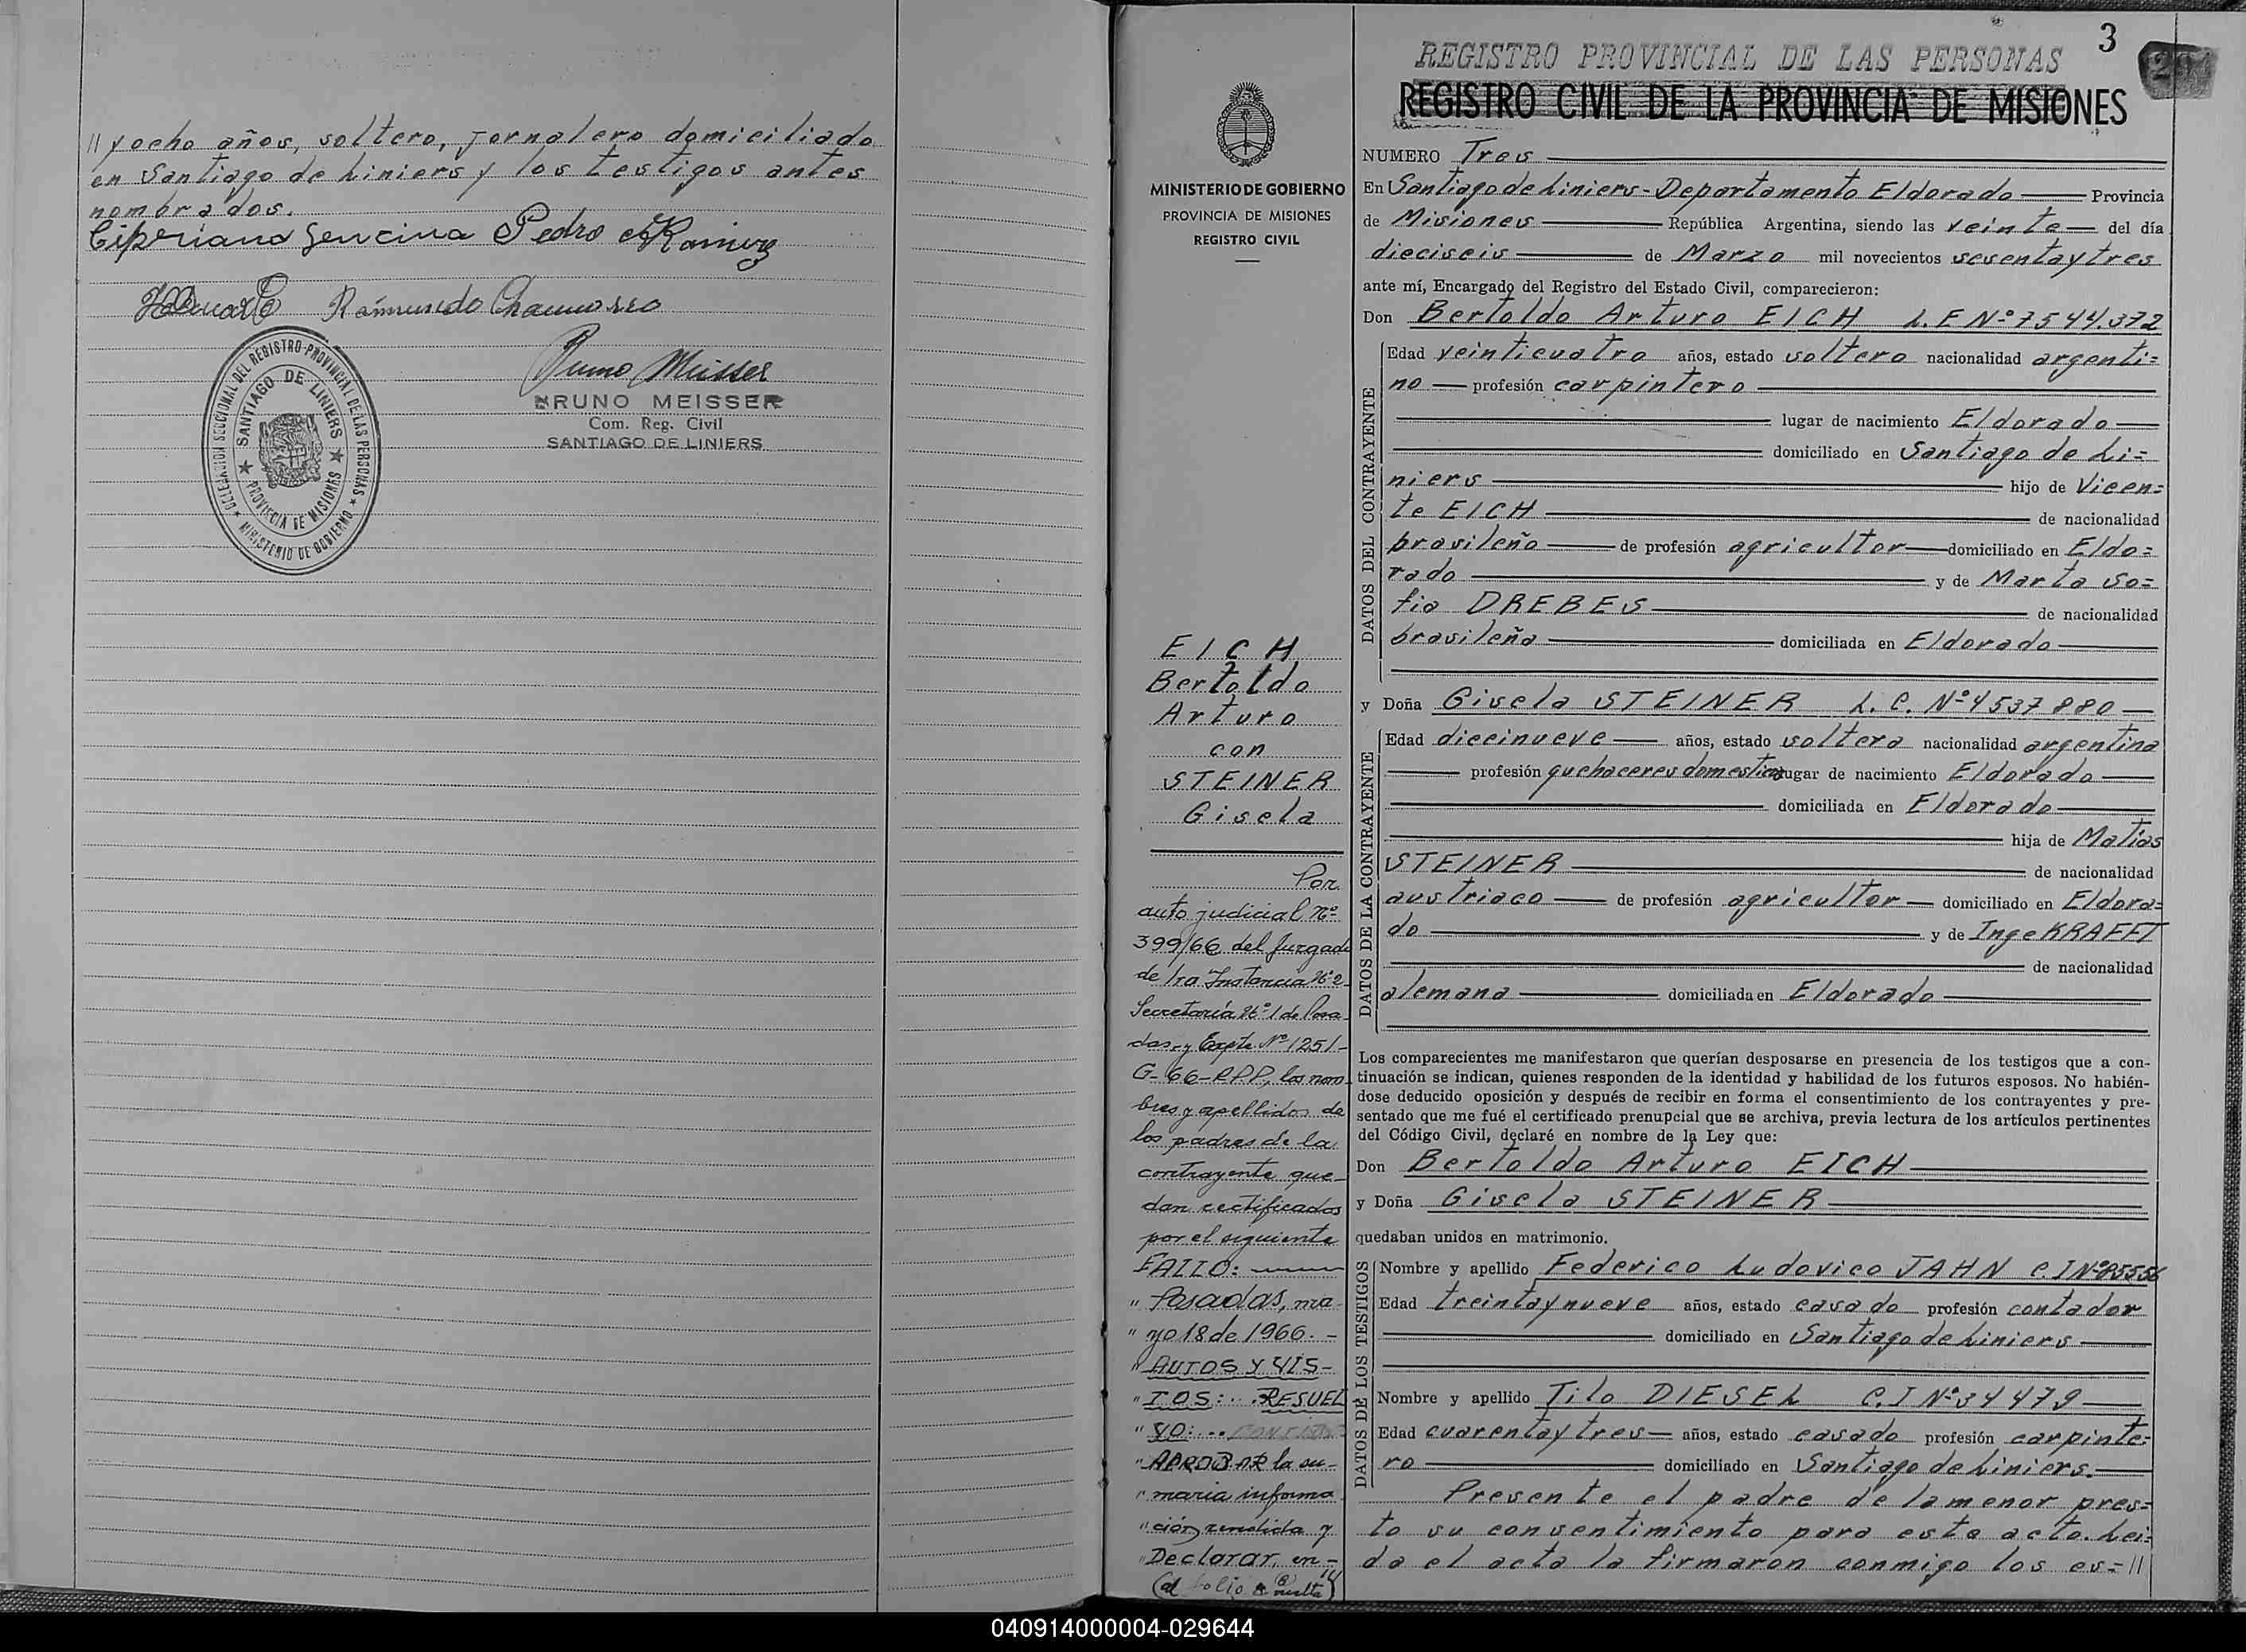 // y ocho años, soltero, jornalero domiciliado
en Santiago de Liniers y los testigos antes
nombrados.
Cipriano Pedro Ramirez
Raimundo Chamorro
Bruno Meisser
BRUNO MEISSER
Com. Reg. Civil
SANTIAGO DE LINIERS
DELEGACION SECCIONAL DEL REGISTRO PROVINCIAL DE LAS PERSONAS ★ MINISTERIO DE GOBIERNO ★
SANTIAGO DE LINIERS ★ PROVINCIA DE MISIONES ★
3
REGISTRO PROVINCIAL DE LAS PERSONAS
REGISTRO CIVIL DE LA PROVINCIA DE MISIONES
MINISTERIO DE GOBIERNO
PROVINCIA DE MISIONES
REGISTRO CIVIL
EICH
Bertoldo
Arturo
con
STEINER
Gisela
Por
auto judicial Nº
399/66 del Juzgado
de 1ra Instancia Nº 2
Secretaría Nº 1 de Posa
das y Expte. Nº 1251-
G-66-RPP, los nom
bres y apellidos de
los padres de la
contrayente que-
dan rectificados
por el siguiente
FALLO:
"Posadas, ma-
"yo 18 de 1966.-
"AUTOS Y VIS-
"TOS:...RESUEL
"VO:...
"APROBAR la su-
"maria informa
"ción rendida y
"Declarar, en-
(al folio 8 vuelta)
NUMERO Tres
En Santiago de Liniers - Departamento Eldorado Provincia
de Misiones República Argentina, siendo las veinte del día
dieciseis de Marzo mil novecientos sesentaytres
ante mí, Encargado del Registro del Estado Civil, comparecieron:
Don Bertoldo Arturo EICH L.E Nº 7544.372
DATOS DEL CONTRAYENTE
Edad veinticuatro años, estado soltero nacionalidad argenti=
no profesión carpintero
lugar de nacimiento Eldorado
domiciliado en Santiago de Li=
niers hijo de Vicen=
te EICH de nacionalidad
brasileño de profesión agricultor domiciliado en Eldo=
rado y de Marta So=
fia DREBES de nacionalidad
brasileña domiciliada en Eldorado
y Doña Gisela STEINER L.C. Nº 4537880
DATOS DE LA CONTRAYENTE
Edad diecinueve años, estado soltera nacionalidad argentina
profesión quehaceres domesticos lugar de nacimiento Eldorado
domiciliada en Eldorado
hija de Matias
STEINER de nacionalidad
austriaco de profesión agricultor domiciliado en Eldora=
do y de Inge KRAFFT
de nacionalidad
alemana domiciliada en Eldorado
Los comparecientes me manifestaron que querían desposarse en presencia de los testigos que a con-
tinuación se indican, quienes responden de la identidad y habilidad de los futuros esposos. No habién-
dose deducido oposición y después de recibir en forma el consentimiento de los contrayentes y pre-
sentado que me fué el certificado prenupcial que se archiva, previa lectura de los artículos pertinentes
del Código Civil, declaré en nombre de la Ley que:
Don Bertoldo Arturo EICH
y Doña Gisela STEINER
quedaban unidos en matrimonio.
DATOS DE LOS TESTIGOS
Nombre y apellido Federico Ludovico JAHN C.I Nº 85556
Edad treintaynueve años, estado casado profesión contador
domiciliado en Santiago de Liniers
Nombre y apellido Tilo DIESEL C.I Nº 34479
Edad cuarentaytres años, estado casado profesión carpinte=
ro domiciliado en Santiago de Liniers.
Presente el padre de la menor pres=
to su consentimiento para este acto. Lei=
da el acta la firmaron conmigo los es=//
040914000004-029644